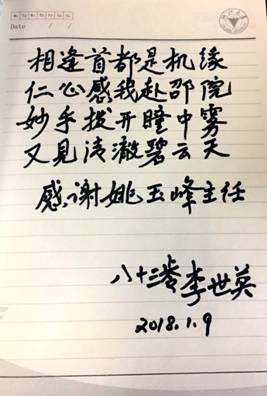 Date
相逢首都是机缘
仁心感我赴邵院
妙手拨开瞳中雾
又见清澈碧云天
感谢姚玉峰主任
八十三岁李世英
2018.1.9